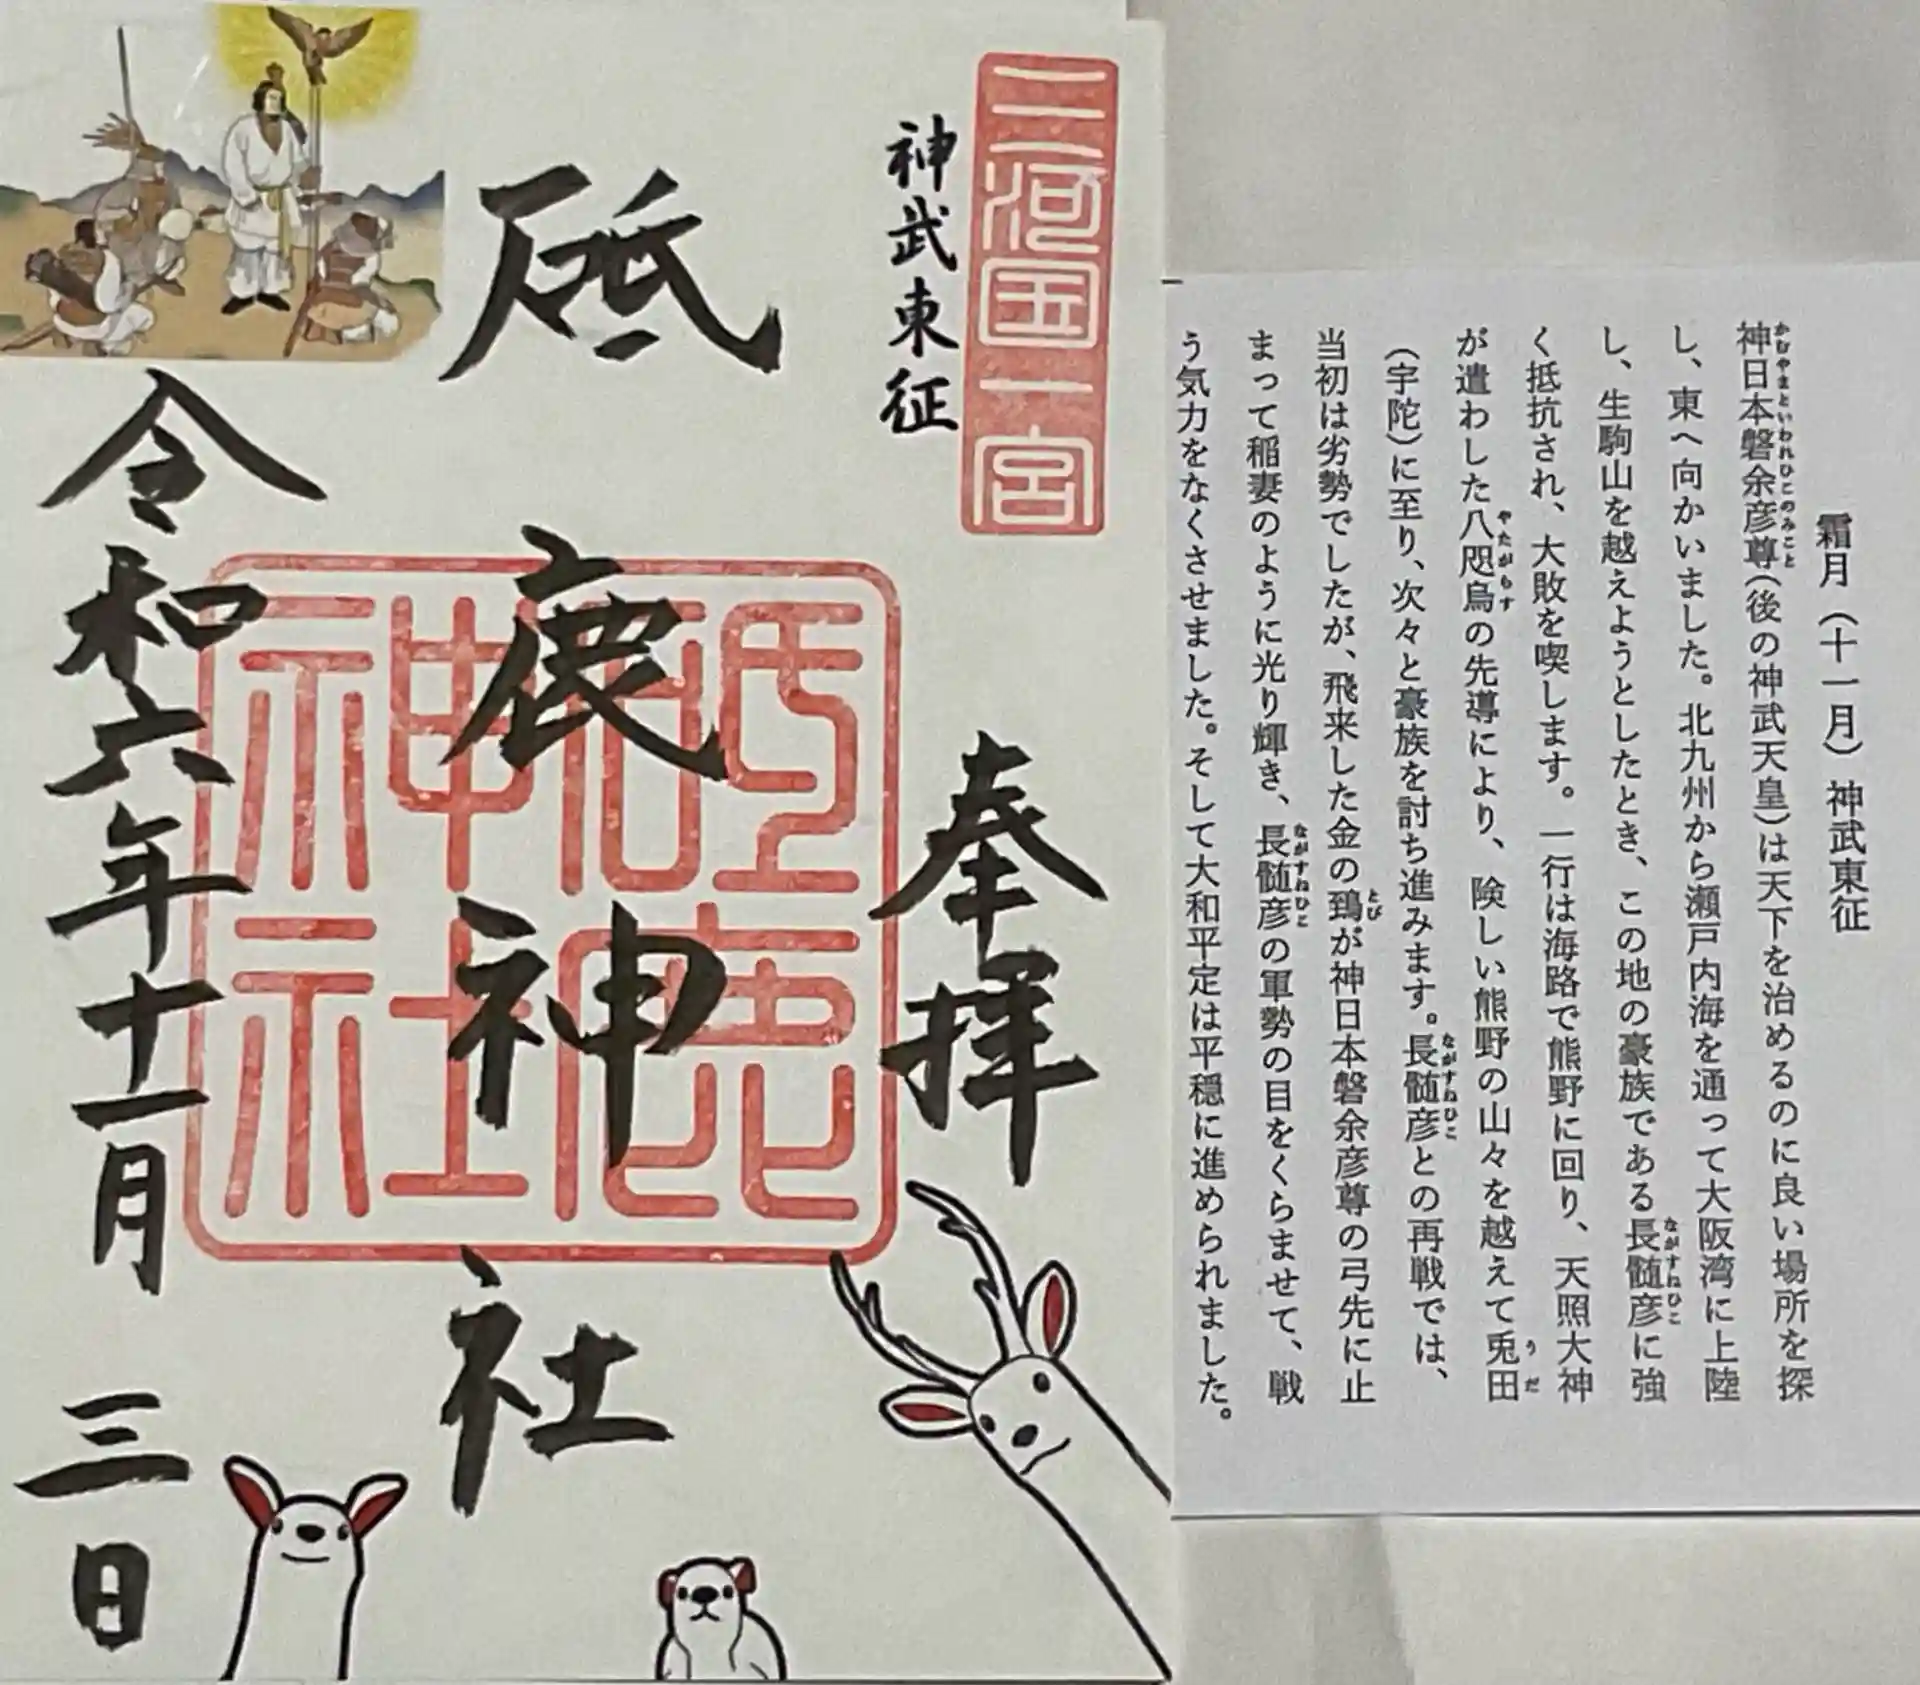 霜月（十一月）神武東征
神日本磐余彦尊（後の神武天皇）は天下を治めるのに良い場所を探
かむやまといわれひこのみこと
し、東へ向かいました。北九州から瀬戸内海を通って大阪湾に上陸
し、生駒山を越えようとしたとき、この地の豪族である長髄彦に強
ながすねひこ
く抵抗され、大敗を喫します。一行は海路で熊野に回り、天照大神
が遣わした八咫烏の先導により、険しい熊野の山々を越えて兎田
やたがらす
うだ
（宇陀）に至り、次々と豪族を討ち進みます。長髄彦との再戦では、
ながすねひこ
当初は劣勢でしたが、飛来した金の鵄が神日本磐余彦尊の弓先に止
とび
まって稲妻のように光り輝き、長髄彦の軍勢の目をくらませて、戦
ながすねひこ
う気力をなくさせました。そして大和平定は平穏に進められました。
三河国一宮
神武東征
奉拝
砥鹿神社
砥鹿神社
令和六年十一月三日